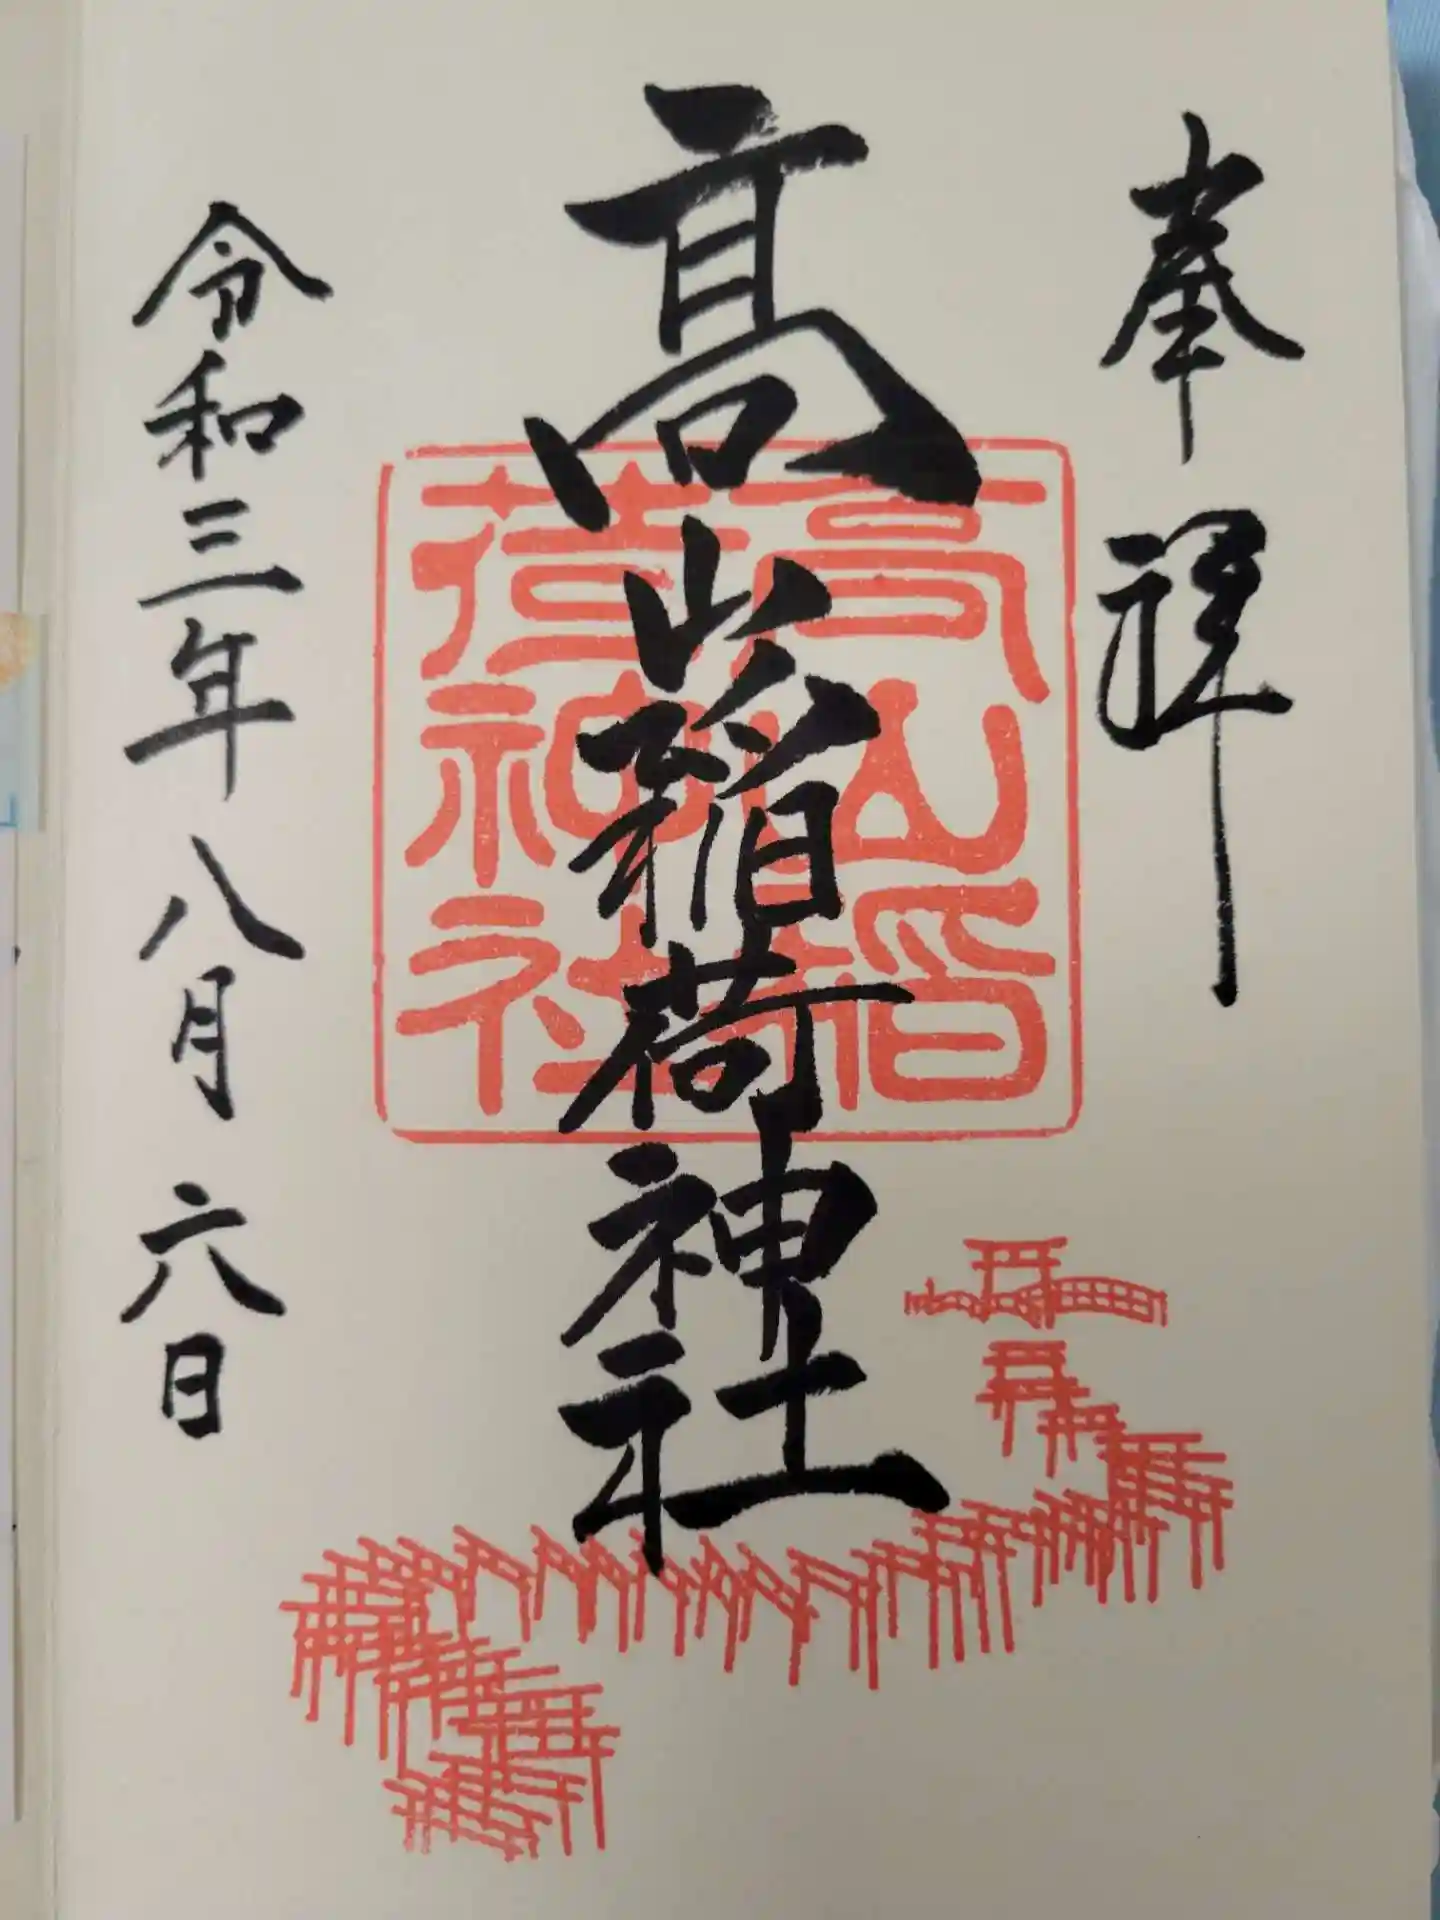 奉拝
髙山稲荷神社
高山稲荷神社
令和三年八月六日